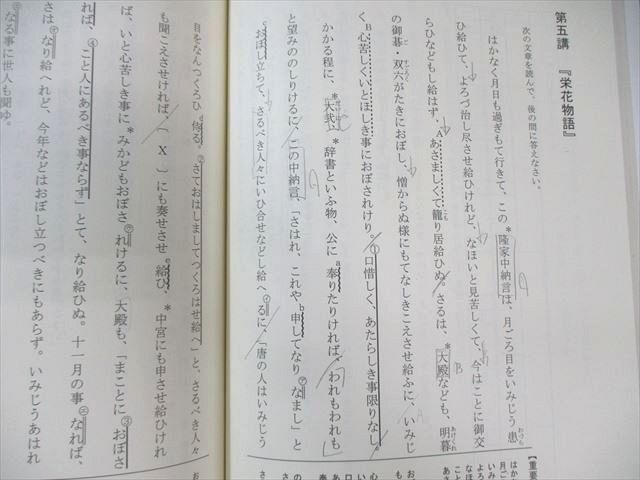 第五講 『栄花物語』
次の文章を読んで、後の問に答えなさい。
はかなく月日も過ぎもて行きて、この＊隆家中納言は、月ごろ目をいみじう患
ひ給ひて、よろづ治し尽させ給ひけれど、なほいと見苦しくて、今はことに御交
らひなどもし給はず、Aあさましくて籠り居給ひぬ。さるは、＊大殿なども、明暮
の御碁・双六がたきにおぼし、憎からぬ様にもてなしきこえさせ給ふに、いみじ
く、B心苦しくいとほしき事におぼされけり。①口惜しく、あたらしき事限りなし。
かかる程に、＊大弐＊辞書といふ物、公にa奉りたりければ、われもわれも
と望みののしりけるに、この中納言、「さはれ、これや、b申してなり㋐なまし」と
cおぼし立ちて、さるべき人々にいひ合せなどし給へ㋑るに、「唐の人はいみじう
目をなんつくろひd侍る。②さておはしましてつくろはせ給へ」と、さるべき人々
も聞こえさせければ、〔 X 〕にも奏せさせe給ひ、＊中宮にも申させ給ひけれ
ば、いと心苦しき事に＊みかどもおぼさ㋒れけるに、大殿も、「まことに③おぼさ
れば、④こと人にあるべき事ならず」とて、なり給ひぬ。十一月の事㋓なれば、
さはなり給へれど、今年などはおぼし立つべきにもあらず。いみじうあはれ
なる事に世人も聞ゆ。